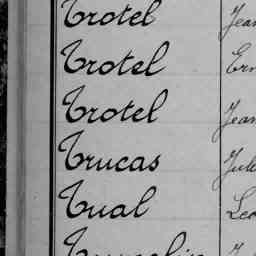 Trotel Jean
Trotel Ern
Trotel Jean
Trucas Jule
Tual Leo